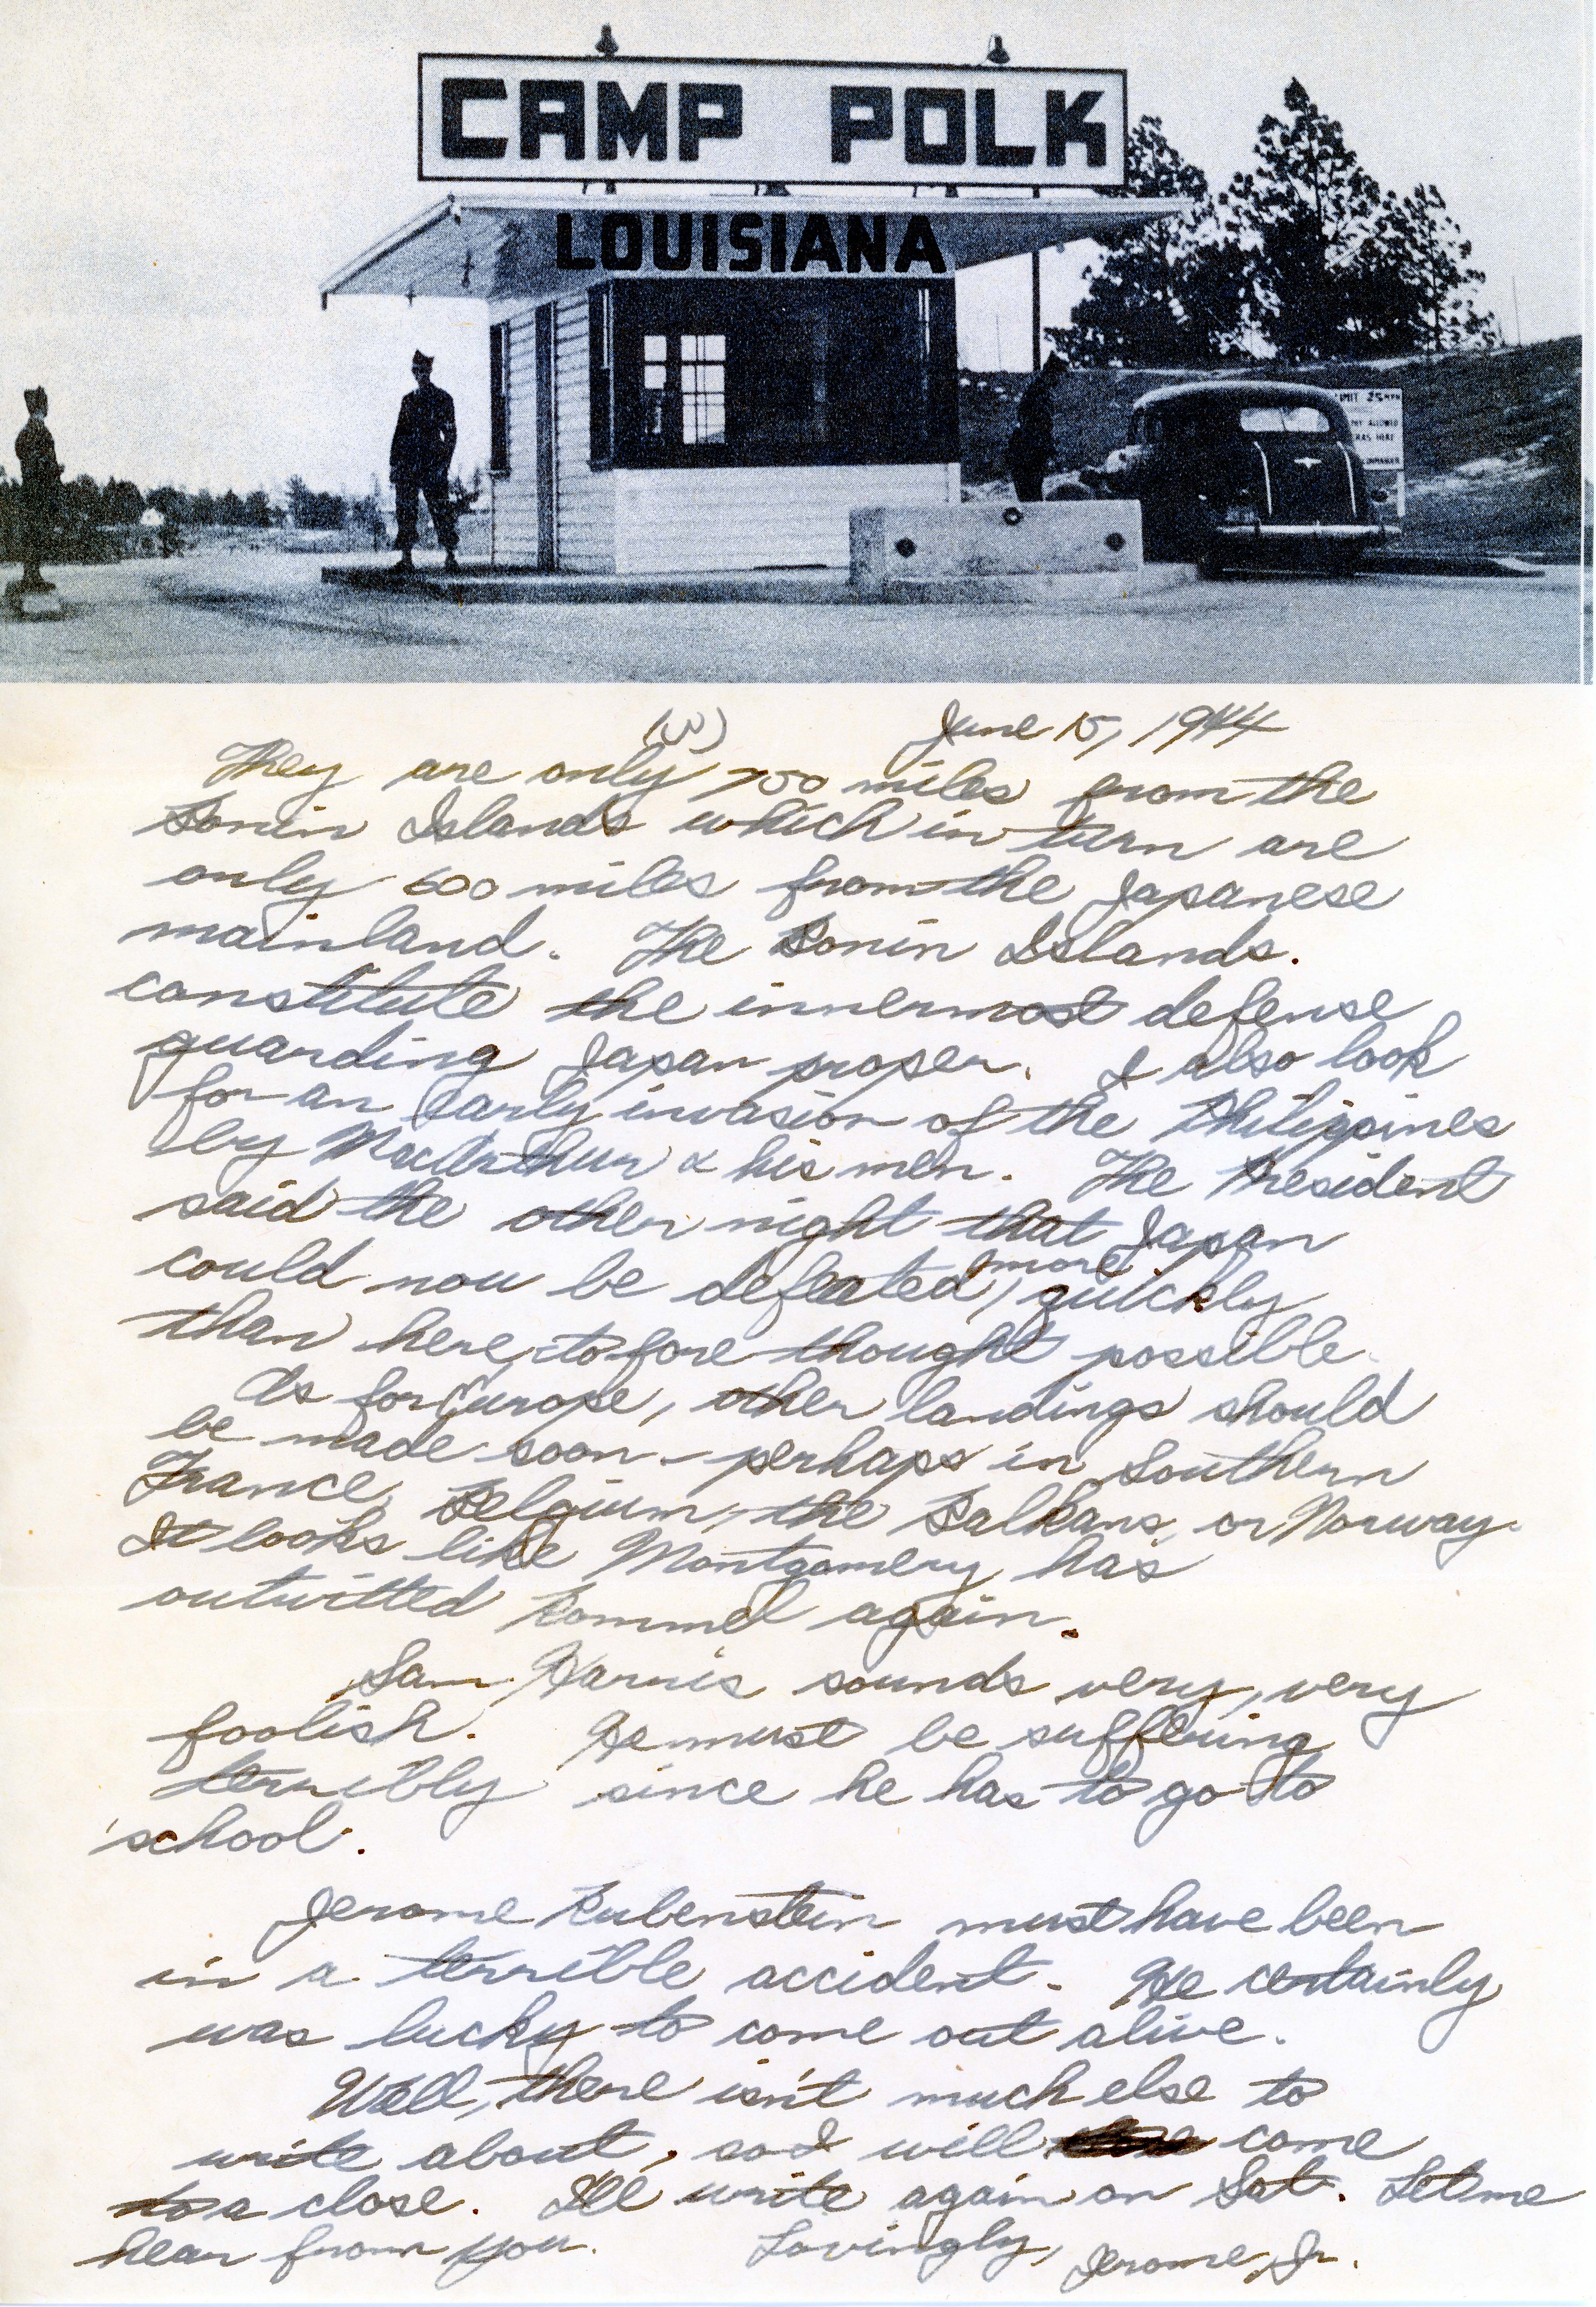 CAMP POLK
LOUISIANA
LIMIT 25 MPH
ALLOWED
HERE
(3) June 15, 1944
They are only 750 miles from the
Bonin Islands which in turn are
only 600 miles from the Japanese
mainland. The Bonin Islands.
constitute the innermost defense
guarding Japan proper. I also look
for an early invasion of the Philippines
by MacArthur & his men. The President
said the other night that Japan
could now be defeated, more quickly
than here-to-fore thought possible.
As for Europe, other landings should
be made soon - perhaps in Southern
France, Belgium, the Balkans, or Norway.
It looks like Montgomery has
outwitted Rommel again.
Sam Harris sounds very, very
foolish. He must be suffering
terribly since he has to go to
school.
Jerome Rubenstein must have been
in a terrible accident. He certainly
was lucky to come out alive.
Well, there isn't much else to
write about, so I will come
to a close. I'll write again on Sat. Let me
hear from you. Lovingly, Jerome, Jr.